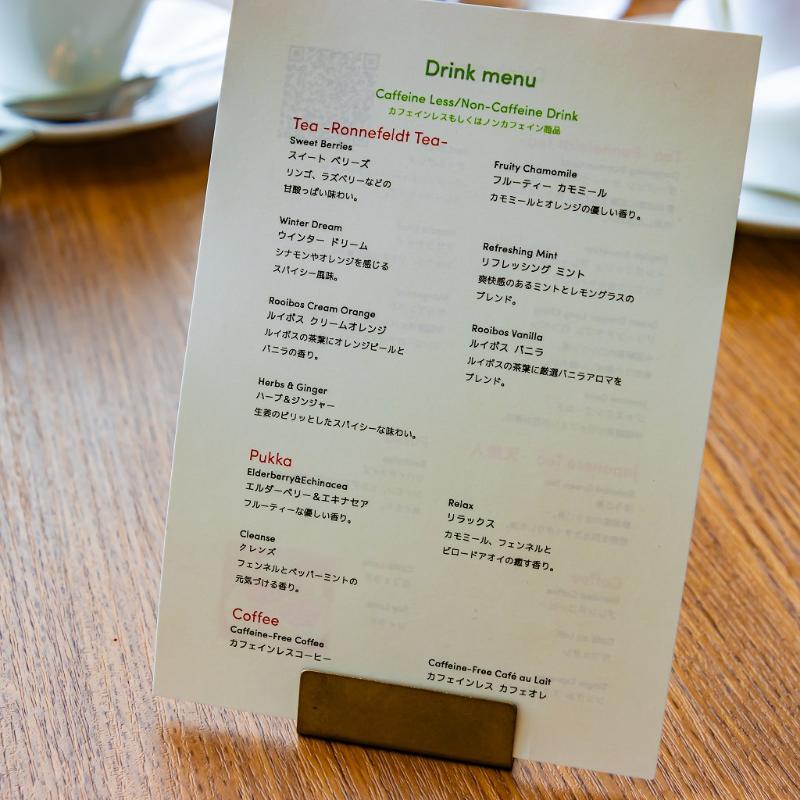 Drink menu
Caffeine Less/Non-Caffeine Drink
カフェインレスもしくはノンカフェイン商品
Tea -Ronnefeldt Tea-
Sweet Berries
スイート ベリーズ
リンゴ、ラズベリーなどの
甘酸っぱい味わい。
Fruity Chamomile
フルーティー カモミール
カモミールとオレンジの優しい香り。
Winter Dream
ウインター ドリーム
シナモンやオレンジを感じる
スパイシー風味。
Refreshing Mint
リフレッシング ミント
爽快感のあるミントとレモングラスの
ブレンド。
Rooibos Cream Orange
ルイボス クリームオレンジ
ルイボスの茶葉にオレンジピールと
バニラの香り。
Rooibos Vanilla
ルイボス バニラ
ルイボスの茶葉に厳選バニラアロマを
ブレンド。
Herbs & Ginger
ハーブ＆ジンジャー
生姜のピリッとしたスパイシーな味わい。
Pukka
Elderberry&Echinacea
エルダーベリー＆エキナセア
フルーティーな優しい香り。
Relax
リラックス
カモミール、フェンネルと
ビロードアオイの癒す香り。
Cleanse
クレンズ
フェンネルとペッパーミントの
元気づける香り。
Coffee
Caffeine-Free Coffee
カフェインレスコーヒー
Caffeine-Free Café au Lait
カフェインレス カフェオレ